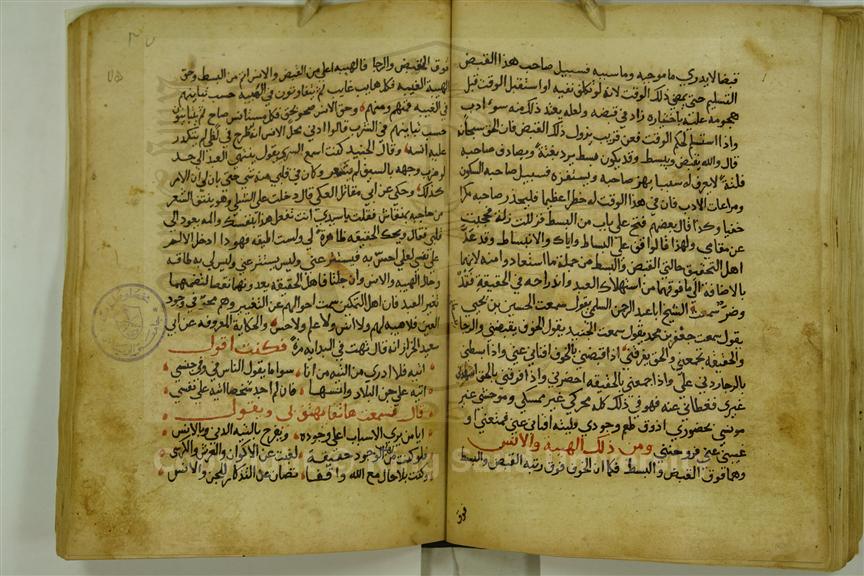 قبضا لا يدري ما موجبه وما سببه فسبيل صاحب هذا القبض
التسليم حتى يمضي ذلك الوقت لانه لو تكلف نفيه او استقبل الوقت قبل
هجومه عليه باختياره زاد في قبضه ولعله يعد ذلك منه سوء ادب
واذا استسلم لحكم الوقت فعن قريب يزول ذلك القبض فان الحق سبحانه
قال والله يقبض ويبسط وقد يكون بسط يرد بغتة ويصادف صاحبه
فلتة لا يعرف له سببا يهز صاحبه ويستفزه فسبيل صاحبه السكون
ومراعات الادب فان في هذا الوقت له خطرا عظيما فليحذر صاحبه مكرا
خفيا وكذا قال بعضهم فتح علي باب من البسط فزللت زلة فحجبت
عن مقامي ولهذا قالوا قف على البساط واياك والانبساط وقد عد
اهل التحقيق حالتي القبض والبسط من جملة ما استعاذوا منه لانهما
بالاضافة الى ما فوقهما من استهلاك العبد واندراجه في الحقيقة فقر
وضر سمعت الشيخ ابا عبد الرحمن السلمي يقول سمعت الحسين بن يحيى
يقول سمعت جعفر بن محمد يقول سمعت الجنيد يقول الخوف يقبضني والرجا
والحقيقة تجمعني والحق يفرقني اذا قبضني بالخوف افناني عني واذا بسطني
بالرجا ردني علي واذا جمعني بالحقيقة احضرني واذا فرقني بالحق اشهدني
غيري فغطاني عنه فهو في ذلك كله محركي غير ممسكي وموحشي غير
مونسي بحضوري اذوق طعم وجودي فليته افناني عني فمتعني او
غيبني عني فروحني ومن ذلك الهيبة والانس
وهما فوق القبض والبسط فكما ان الخوف فوق رتبة القبض والبسط
فوق
فوق القبض والرجا فالهيبة اعلى من القبض والانس اتم من البسط وحق
الهيبة الغيبة فكل هايب غايب ثم يتفاوتون في الهيبة حسب تباينهم
في الغيبة فمنهم ومنهم وحق الانس صحو بحق فكل مستانس صاح ثم يتباينون
حسب تباينهم في الشرب قالوا ادنى محل الانس انه لو طرح في لظى لم يتكدر
عليه انسه وقال الجنيد كنت اسمع السري يقول ينتهي العبد الى حد
لو ضرب وجهه بالسيف لم يشعر وكان في قلبي منه شي حتى بان لي ان الامر
كذلك وحكي عن ابي مقاتل العكي قال دخلت على الشبلي وهو ينتف الشعر
من حاجبه بمنقاش فقلت يا سيدي انت تفعل هذا بنفسك والمه يعود الى
قلبي فقال ويحك الحقيقة ظاهرة لي ولست اطيقه فهو ذا ادخل الالم
على نفسي لعلي احس به فيستتر عني وليس يستتر عني وليس لي به طاقة
وحال الهيبة والانس وان جلتا فاهل الحقيقة يعدونهما نقصا لتضمنهما
تغير العبد فان اهل التمكين سمت احوالهم عن التغيير وهم محو في وجود
العين فلا هيبة لهم ولا انس ولا علم ولا حس والحكاية المعروفة عن ابي
سعيد الخراز انه قال تهت في البادية مرة فكنت اقول
اتيه فلا ادري من التيه من انا سوا ما يقول الناس في وفي جنسي
اتيه على جن البلاد وانسها فان لم اجد شخصا اتيه على نفسي
قال فسمعت هاتفا يهتف لي ويقول
ايا من يرى الاسباب اعلى وجوده ويفرح بالتيه الدني وبالانس
فلو كنت من اهل الوجود حقيقة لغبت عن الاكوان والعرش والكرسي
وكنت بلا حال مع الله واقفا تصان عن التذكار للجن والانس